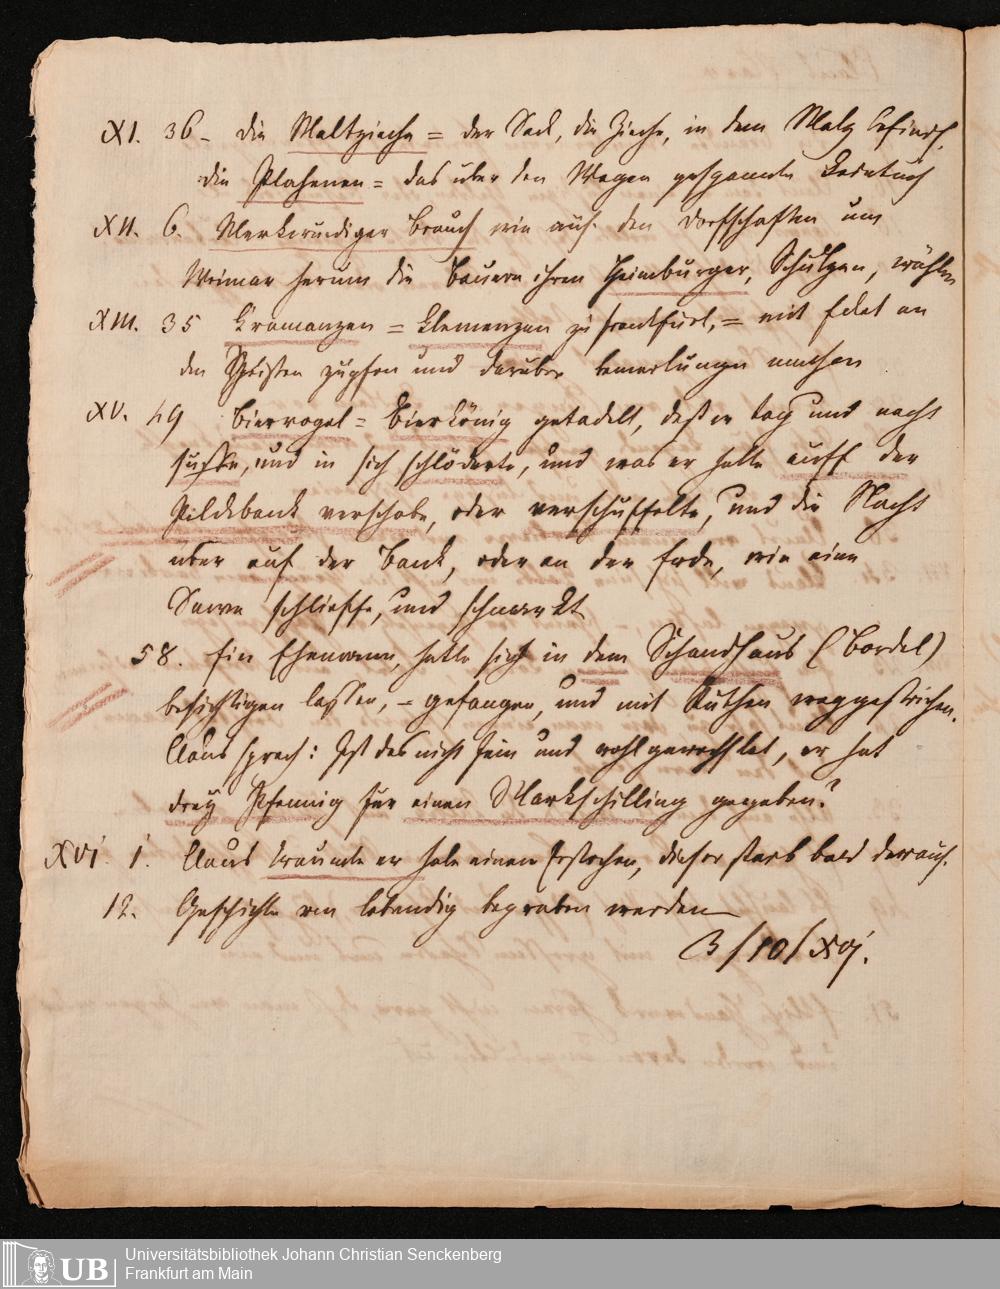 XI. 36 – die Maltziache = der Sack, die Zieche, in dem Malz befindl.
die Plahenen = das über den Wagen gespannte Ledertuch
XII. 6. Merkwürdiger Brauch wie auf den Dorfschaften um
Weimar herum die Bauern ihren Heimburger, Schultzen, wählen
XIII. 35 Kramanzen = Clemenzen zu Frankfurt, = mit Eclat an
den Speisen zupfen und darüber bemerkungen machen
XV. 49 Biervogel = Bierkönig getadelt, daß er tag und nacht
suffe, und in sich schlöderte, und was er hette auff der
Pildebank verschobe, oder verschuffelte, und die Nacht
über auf der Bank, oder an der Erde, wie eine
Sawe schlieffe, und schnarkt
58. Ein Ehemann, hatte sich in dem Schandhaus (Bordel)
besichtigen lassen, – gefangen, und mit Ruthen weggestrichen.
Claus sprach: Ist das nicht fein und wohl gewechslet, er hat
drey Pfennig für einen Markschilling gegeben?
XVI. 1. Claus traumte er habe einen erstochen, dieser starb bald darauf.
12. Geschichte von lebendig begraben werden
B/10/XVI.
Universitätsbibliothek Johann Christian Senckenberg
Frankfurt am Main
UB